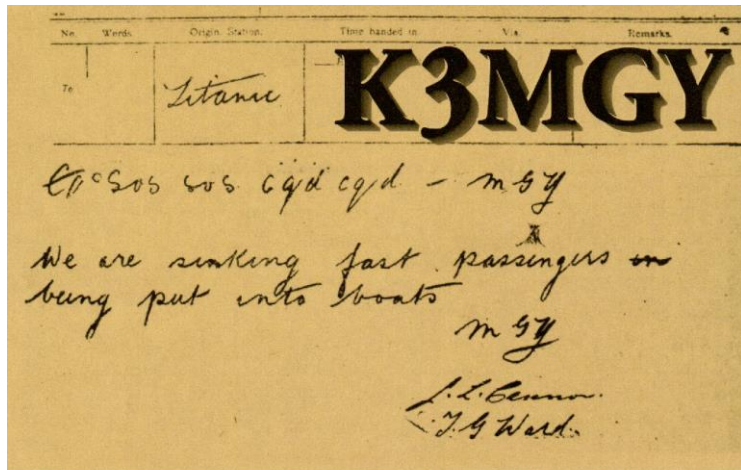 No. Words. Origin. Station. Time handed in. Via. Remarks.
To Titanic K3MGY
SOS SOS cqd cqd - MGY
We are sinking fast passengers
being put into boats
MGY
T G Ward.